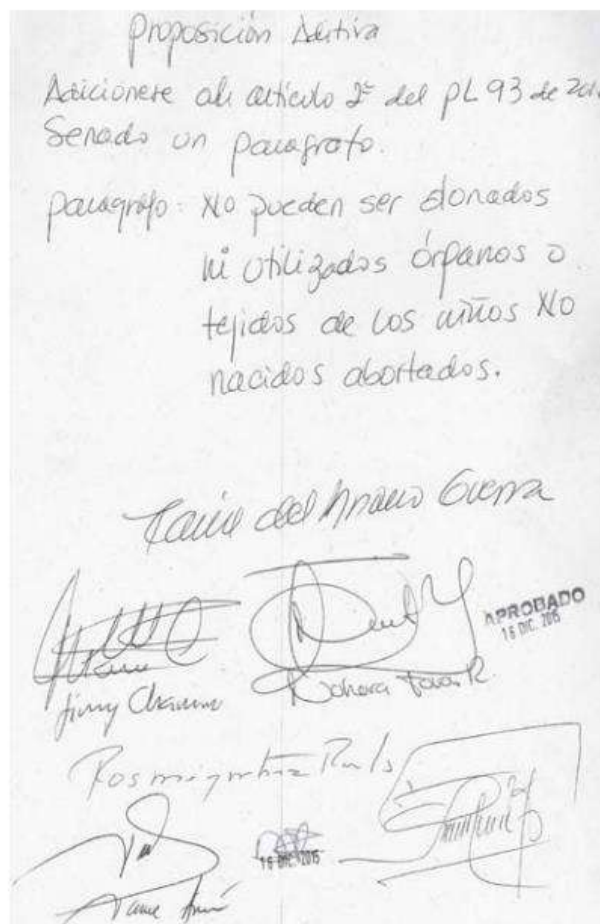 Proposición Aditiva
Adicionese al artículo 2º del PL 93 de
Senado un paragrafo.
paragrafo: No pueden ser donados
ni utilizados órganos o
tejidos de los niños No
nacidos abortados.
Guerra
APROBADO
16 DIC. 2015
Jimmy Chamorro
Nohora Tovar R.
16 DIC. 2015